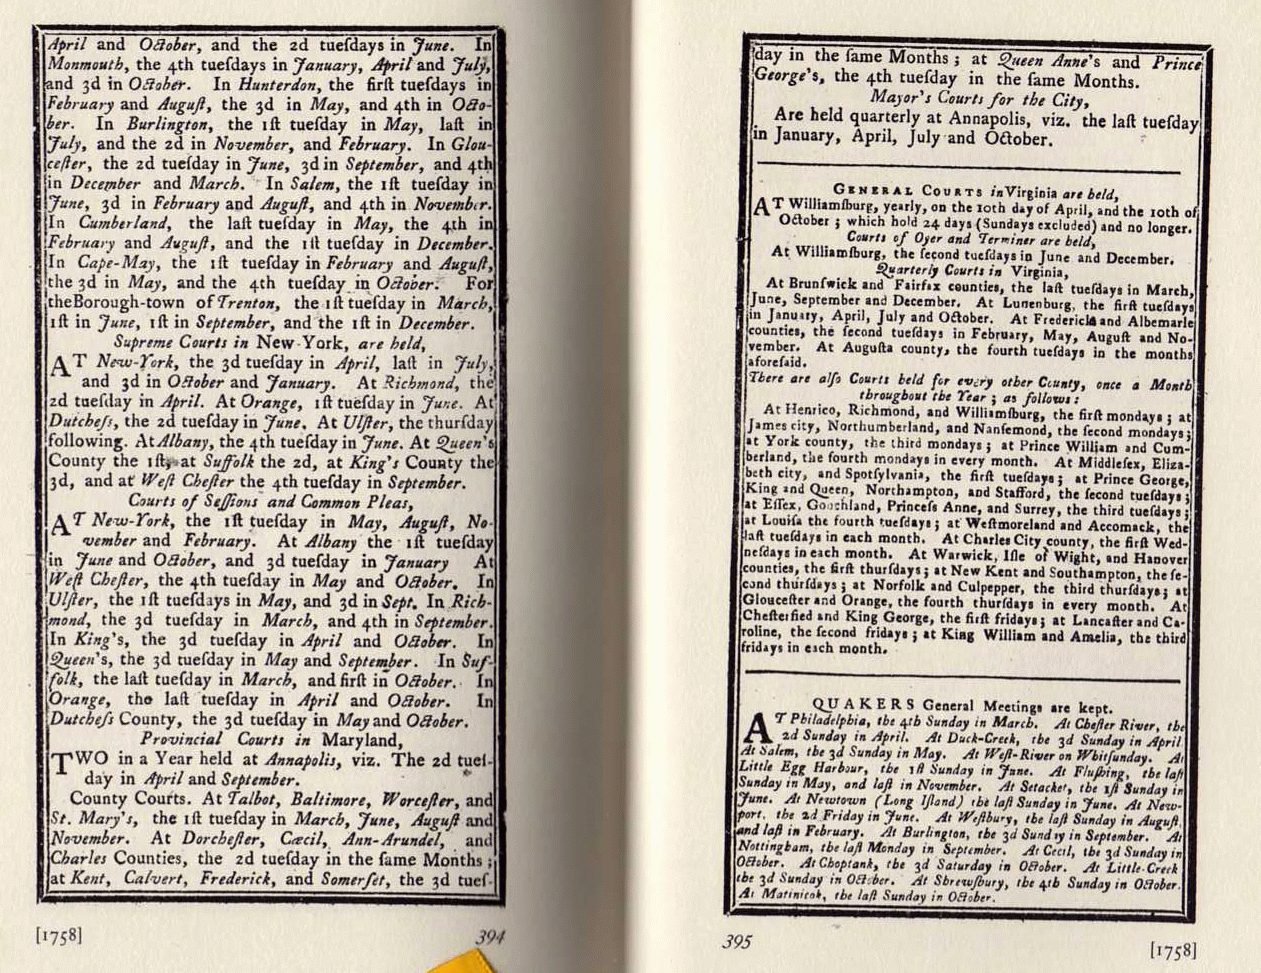 April and October, and the 2d tueſdays in June. In
Monmouth, the 4th tueſdays in January, April and July,
and 3d in October. In Hunterdon, the firſt tueſdays in
February and Auguſt, the 3d in May, and 4th in Octo-
ber. In Burlington, the 1ſt tueſday in May, laſt in
July, and the 2d in November, and February. In Glou-
ceſter, the 2d tueſday in June, 3d in September, and 4th
in December and March. In Salem, the 1ſt tueſday in
June, 3d in February and Auguſt, and 4th in November.
In Cumberland, the laſt tueſday in May, the 4th in
February and Auguſt, and the 1ſt tueſday in December.
In Cape-May, the 1ſt tueſday in February and Auguſt,
the 3d in May, and the 4th tueſday in October. For
theBorough-town of Trenton, the 1ſt tueſday in March,
1ſt in June, 1ſt in September, and the 1ſt in December.
Supreme Courts in New-York, are held,
AT New-York, the 3d tueſday in April, laſt in July,
and 3d in October and January. At Richmond, the
2d tueſday in April. At Orange, 1ſt tueſday in June. At
Dutcheſs, the 2d tueſday in June. At Ulſter, the thurſday
following. At Albany, the 4th tueſday in June. At Queen's
County the 1ſt, at Suffolk the 2d, at King's County the
3d, and at Weſt Cheſter the 4th tueſday in September.
Courts of Seſſions and Common Pleas,
AT New-York, the 1ſt tueſday in May, Auguſt, No-
vember and February. At Albany the 1ſt tueſday
in June and October, and 3d tueſday in January At
Weſt Cheſter, the 4th tueſday in May and October. In
Ulſter, the 1ſt tueſdays in May, and 3d in Sept. In Rich-
mond, the 3d tueſday in March, and 4th in September.
In King's, the 3d tueſday in April and October. In
Queen's, the 3d tueſday in May and September. In Suf-
folk, the laſt tueſday in March, and firſt in October. In
Orange, the laſt tueſday in April and October. In
Dutcheſs County, the 3d tueſday in May and October.
Provincial Courts in Maryland,
TWO in a Year held at Annapolis, viz. The 2d tueſ-
day in April and September.
County Courts. At Talbot, Baltimore, Worceſter, and
St. Mary's, the 1ſt tueſday in March, June, Auguſt and
November. At Dorcheſter, Cæcil, Ann-Arundel, and
Charles Counties, the 2d tueſday in the ſame Months ;
at Kent, Calvert, Frederick, and Somerſet, the 3d tueſ-
[1758]
394
day in the ſame Months ; at Queen Anne's and Prince
George's, the 4th tueſday in the ſame Months.
Mayor's Courts for the City,
Are held quarterly at Annapolis, viz. the laſt tueſday
in January, April, July and October.
GENERAL COURTS in Virginia are held,
AT Williamſburg, yearly, on the 10th day of April, and the 10th of
October ; which hold 24 days (Sundays excluded) and no longer.
Courts of Oyer and Terminer are held,
At Williamſburg, the ſecond tueſdays in June and December.
Quarterly Courts in Virginia,
At Brunſwick and Fairfax counties, the laſt tueſdays in March,
June, September and December. At Lunenburg, the firſt tueſdays
in January, April, July and October. At Frederick and Albemarle
counties, the ſecond tueſdays in February, May, Auguſt and No-
vember. At Auguſta county, the fourth tueſdays in the months
aforeſaid.
There are alſo Courts held for every other County, once a Month
throughout the Year ; as follows :
At Henrico, Richmond, and Williamſburg, the firſt mondays ; at
James city, Northumberland, and Nanſemond, the ſecond mondays ;
at York county, the third mondays ; at Prince William and Cum-
berland, the fourth mondays in every month. At Middleſex, Eliza-
beth city, and Spotſylvania, the firſt tueſdays ; at Prince George,
King and Queen, Northampton, and Stafford, the ſecond tueſdays ;
at Eſſex, Goochland, Princeſs Anne, and Surrey, the third tueſdays ;
at Louiſa the fourth tueſdays ; at Weſtmoreland and Accomack, the
laſt tueſdays in each month. At Charles City county, the firſt Wed-
neſdays in each month. At Warwick, Iſle of Wight, and Hanover
counties, the firſt thurſdays ; at New Kent and Southampton, the ſe-
cond thurſdays ; at Norfolk and Culpepper, the third thurſdays ; at
Glouceſter and Orange, the fourth thurſdays in every month. At
Cheſterfied and King George, the firſt fridays ; at Lancaſter and Ca-
roline, the ſecond fridays ; at King William and Amelia, the third
fridays in each month.
QUAKERS General Meetings are kept.
AT Philadelphia, the 4th Sunday in March. At Cheſter River, the
2d Sunday in April. At Duck-Creek, the 3d Sunday in April
At Salem, the 3d Sunday in May. At Weſt-River on Whitſunday. At
Little Egg Harbour, the 1ſt Sunday in June. At Fluſhing, the laſt
Sunday in May, and laſt in November. At Setacket, the 1ſt Sunday in
June. At Newtown (Long Iſland) the laſt Sunday in June. At New-
port, the 2d Friday in June. At Weſtbury, the laſt Sunday in Auguſt,
and laſt in February. At Burlington, the 3d Sunday in September. At
Nottingham, the laſt Monday in September. At Cecil, the 3d Sunday in
October. At Choptank, the 3d Saturday in October. At Little-Creek
the 3d Sunday in October. At Shrewſbury, the 4th Sunday in October.
At Matinicok, the laſt Sunday in October.
395
[1758]